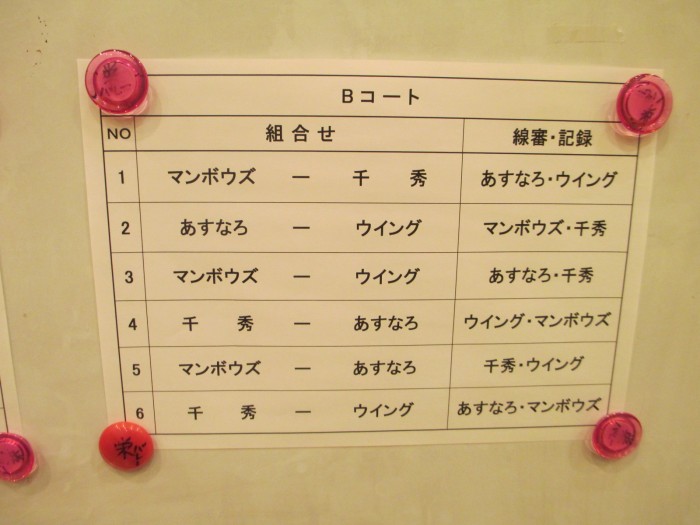 Bコート
NO 組合せ 線審・記録
1 マンボウズ ― 千 秀 あすなろ・ウイング
2 あすなろ ― ウイング マンボウズ・千秀
3 マンボウズ ― ウイング あすなろ・千秀
4 千 秀 ― あすなろ ウイング・マンボウズ
5 マンボウズ ― あすなろ 千秀・ウイング
6 千 秀 ― ウイング あすなろ・マンボウズ
栄